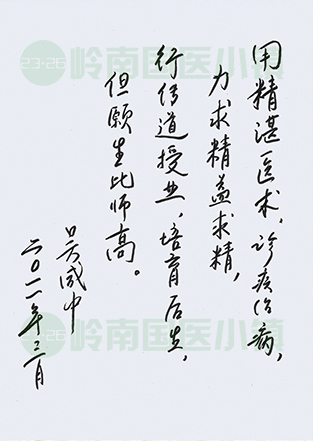 用精湛医术,诊疾治病,
力求精益求精,
行传道授业,培育后生,
但愿生比师高。
吴咸中
二〇一一年三月
23-26 岭南国医小镇
岭南国医小镇